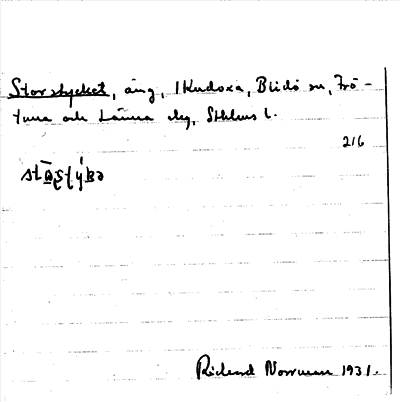 Storstycket, äng, 1 Kudoxa, Blidö sn, Frö-
tuna och Länna slg, Sthlms l.
216
Rickard Norrman 1931.